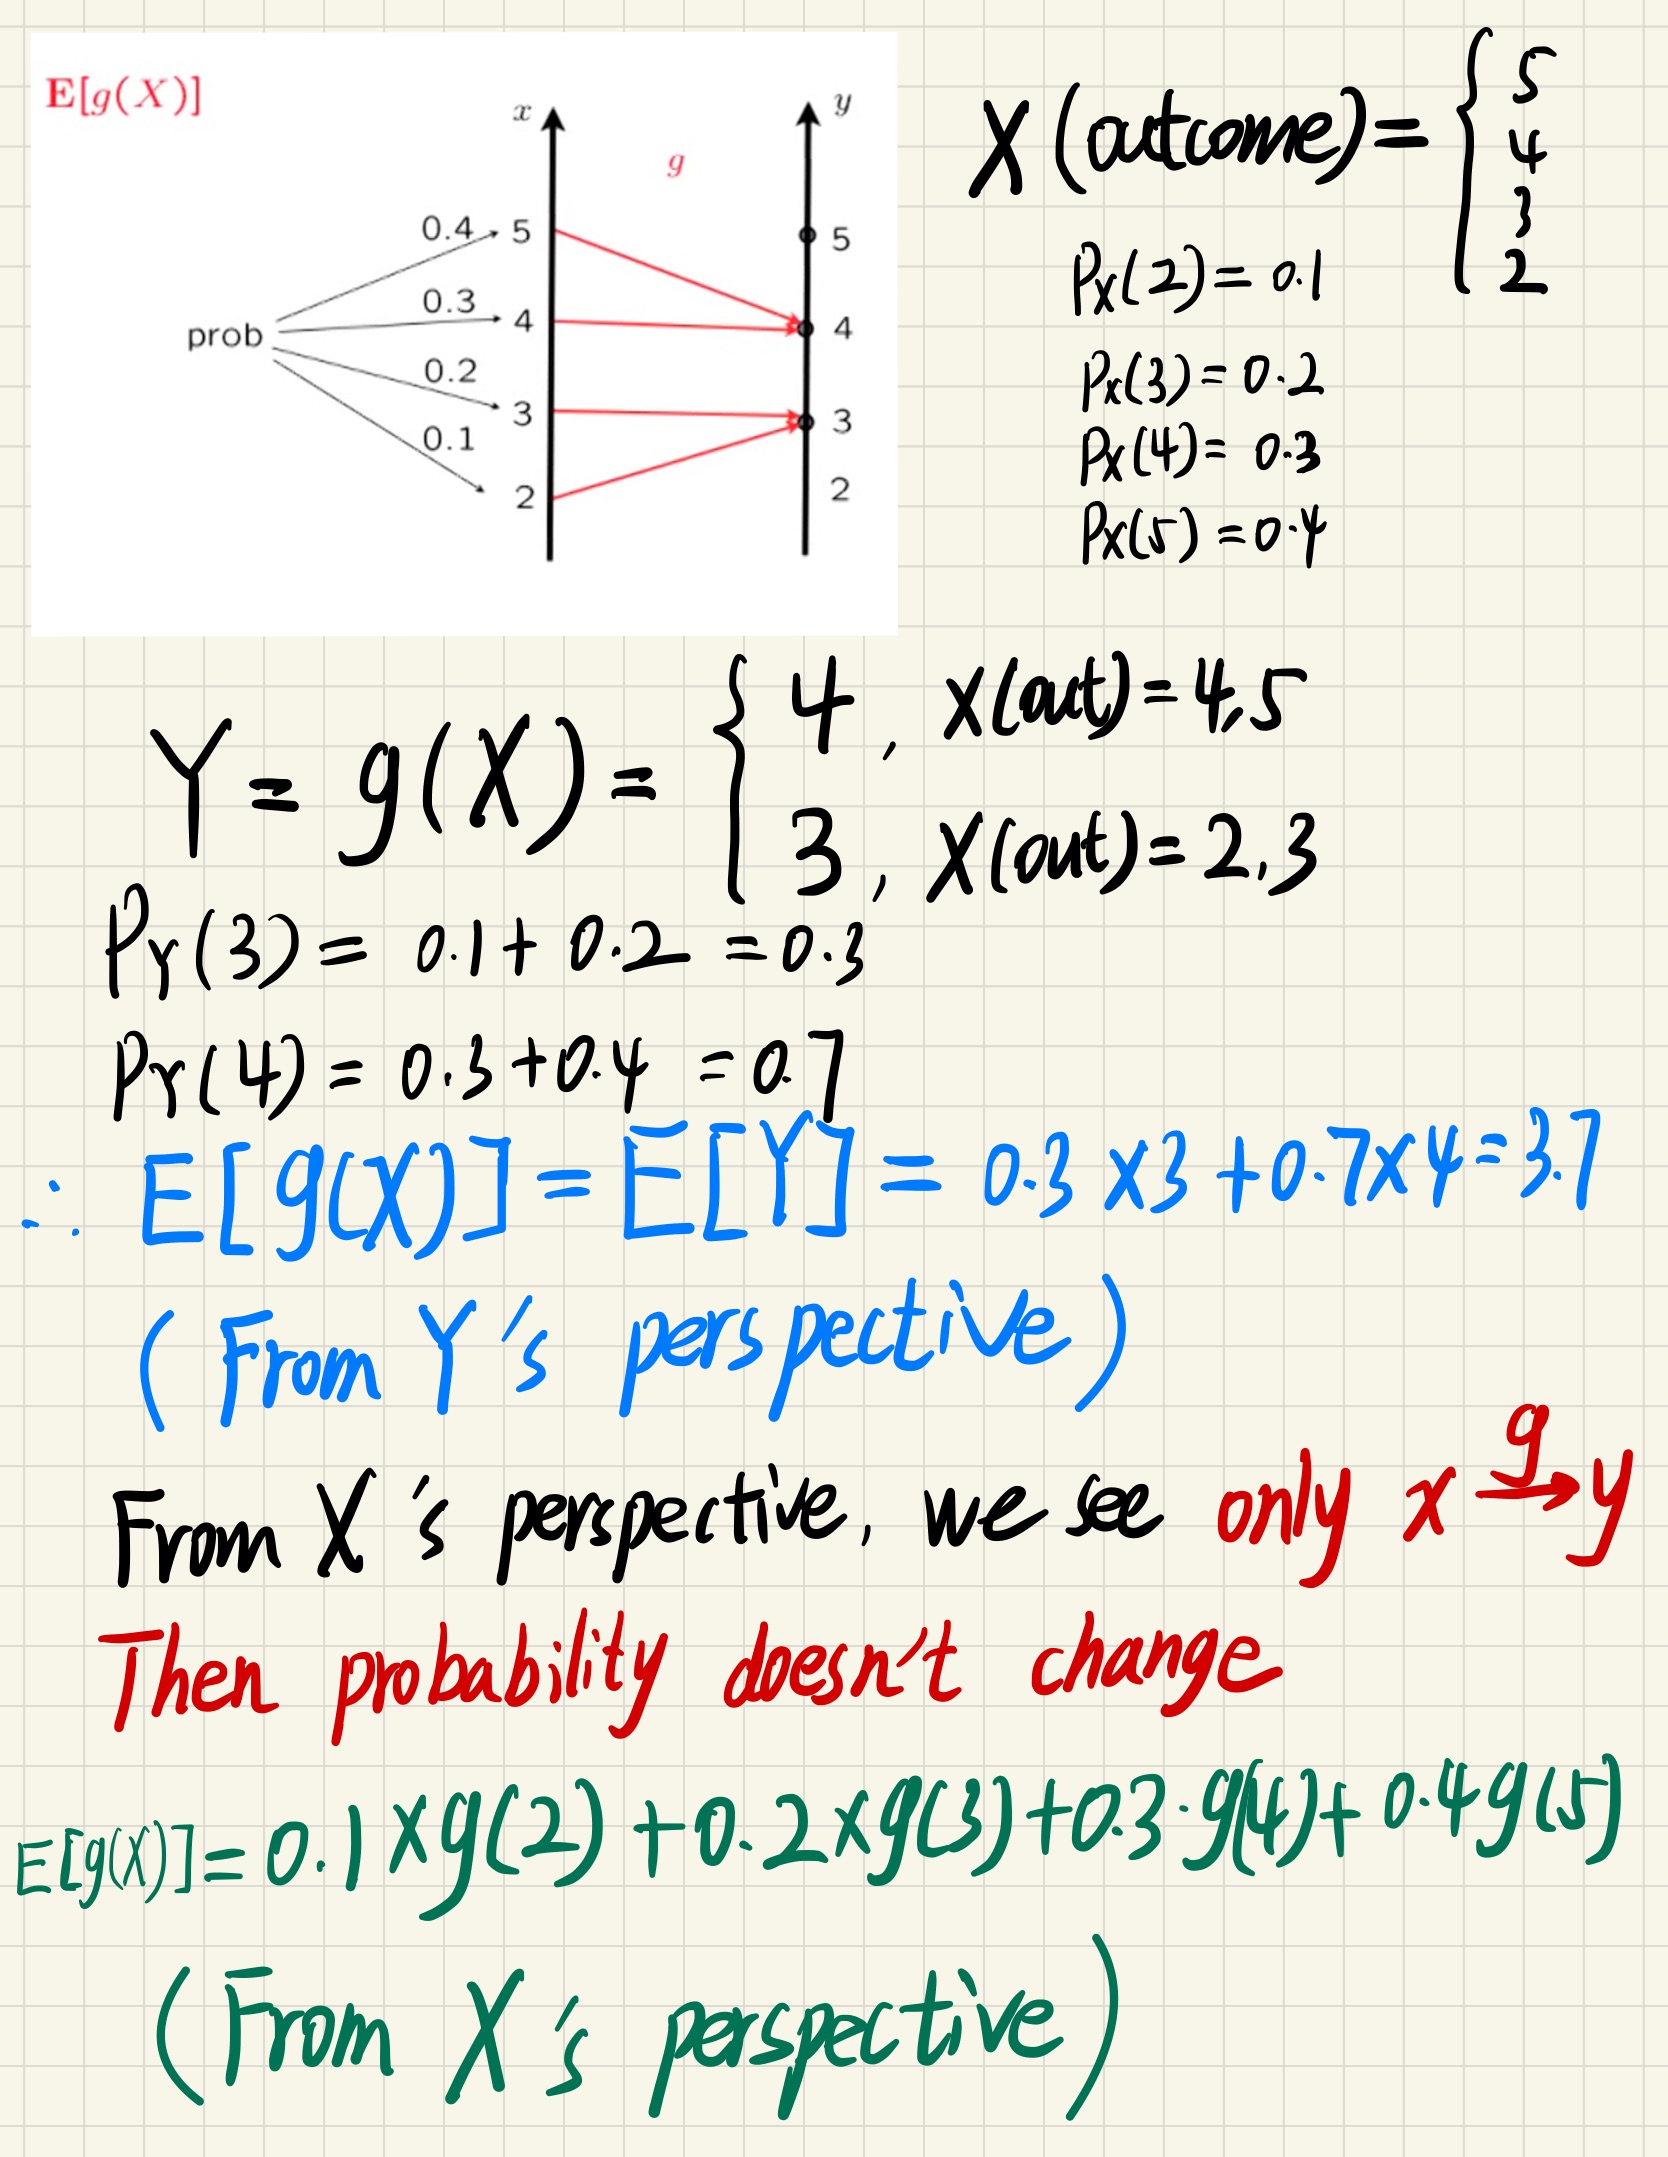 E[g(X)]
x
g
y
prob
0.4
0.3
0.2
0.1
5
4
3
2
5
4
3
2
X(outcome)= { 5
4
3
2
Px(2)= 0.1
Px(3)= 0.2
Px(4)= 0.3
Px(5)=0.4
Y = g(X)= { 4, X(out)=4,5
3, X(out)=2,3
PY(3)= 0.1+ 0.2 =0.3
PY(4)= 0.3+0.4 =0.7
∴ E[g(X)]=E[Y]= 0.3×3+0.7×4=3.7
(From Y's perspective)
From X's perspective, we see only x g→ y
Then probability doesn't change
E[g(X)]=0.1×g(2)+0.2×g(3)+0.3·g(4)+0.4g(5)
(From X's perspective)